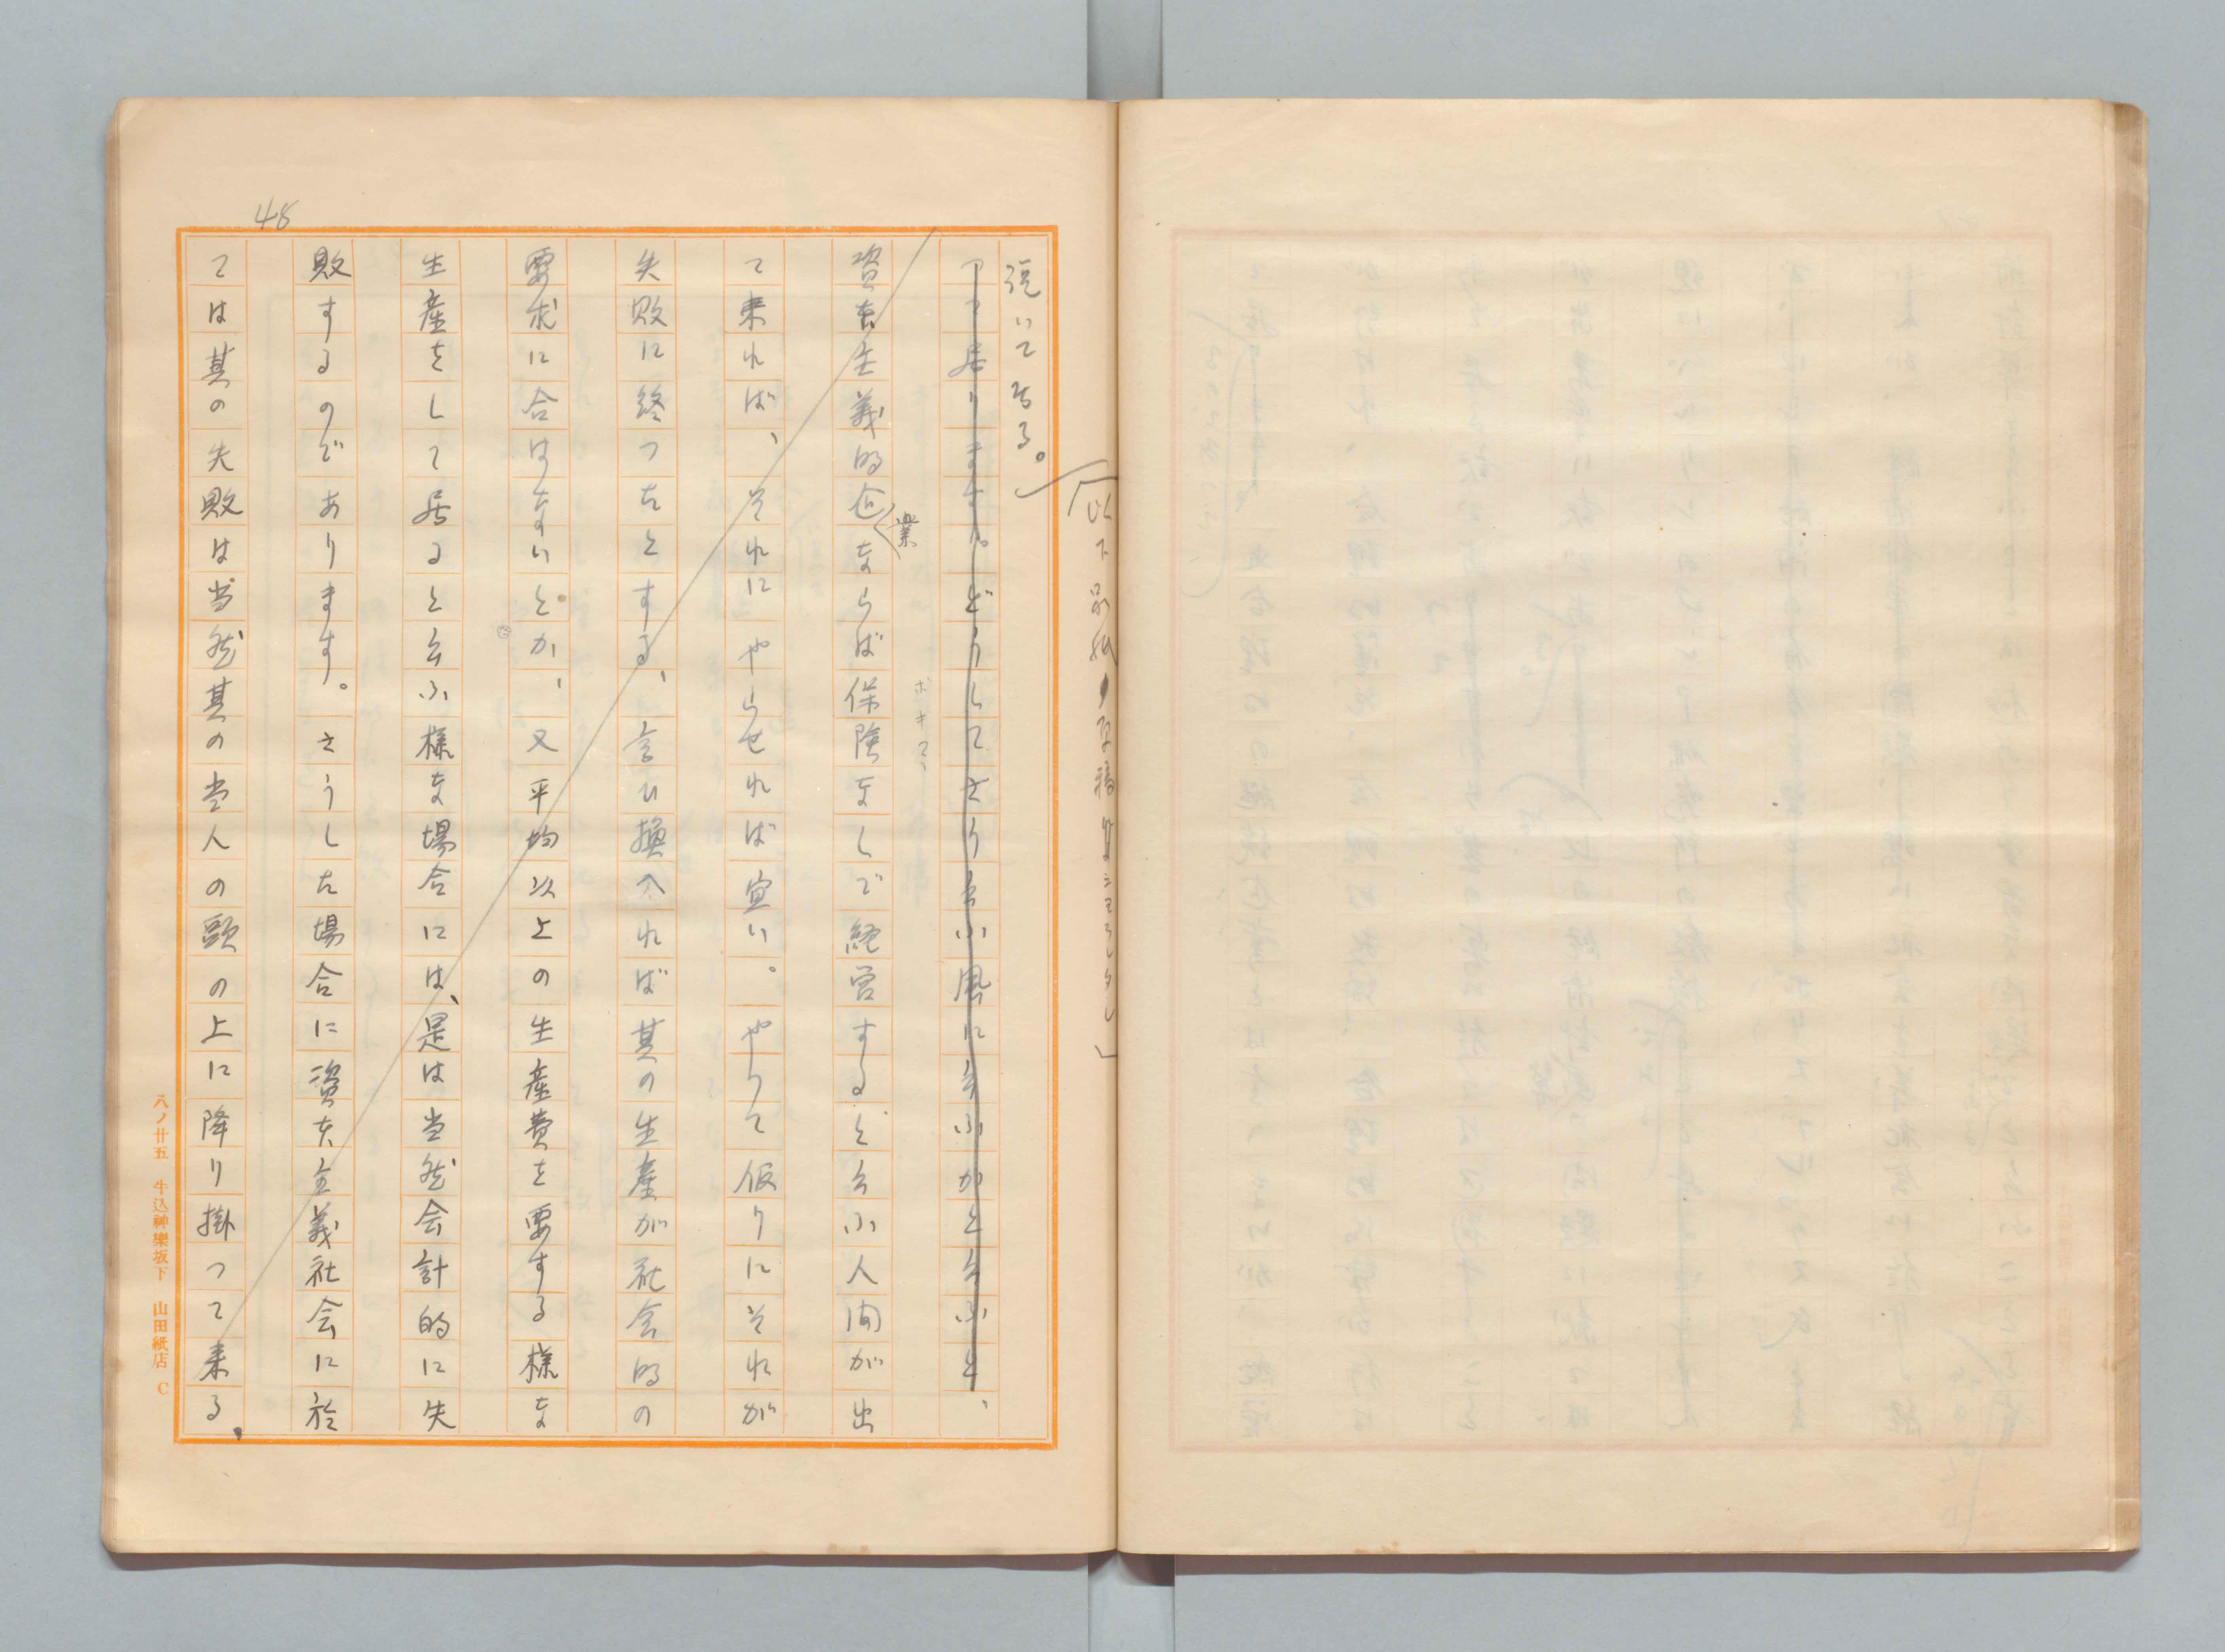 「以下別紙ノ原稿
説いて居る。
つて居ります。どうしてさう云ふ風に云ふかと云ふと、
資本主義的企業ならば保険なしで経営すると云ふ人間が出
て来れば、それにやらせれば宜い。やつて仮りにそれが
失敗に終つたとする、言ひ換へれば其の生産が社会的の
要求に合はないとか、又平均以上の生産費を要する様な
生産をして居ると云ふ様な場合には、是は当然会計的に失
敗するのであります。さうした場合に資本主義社会に於
ては其の失敗は当然其の当人の頭の上に降り掛つて来る。
48
八ノ廿五 牛込神樂坂下 山田紙店 C